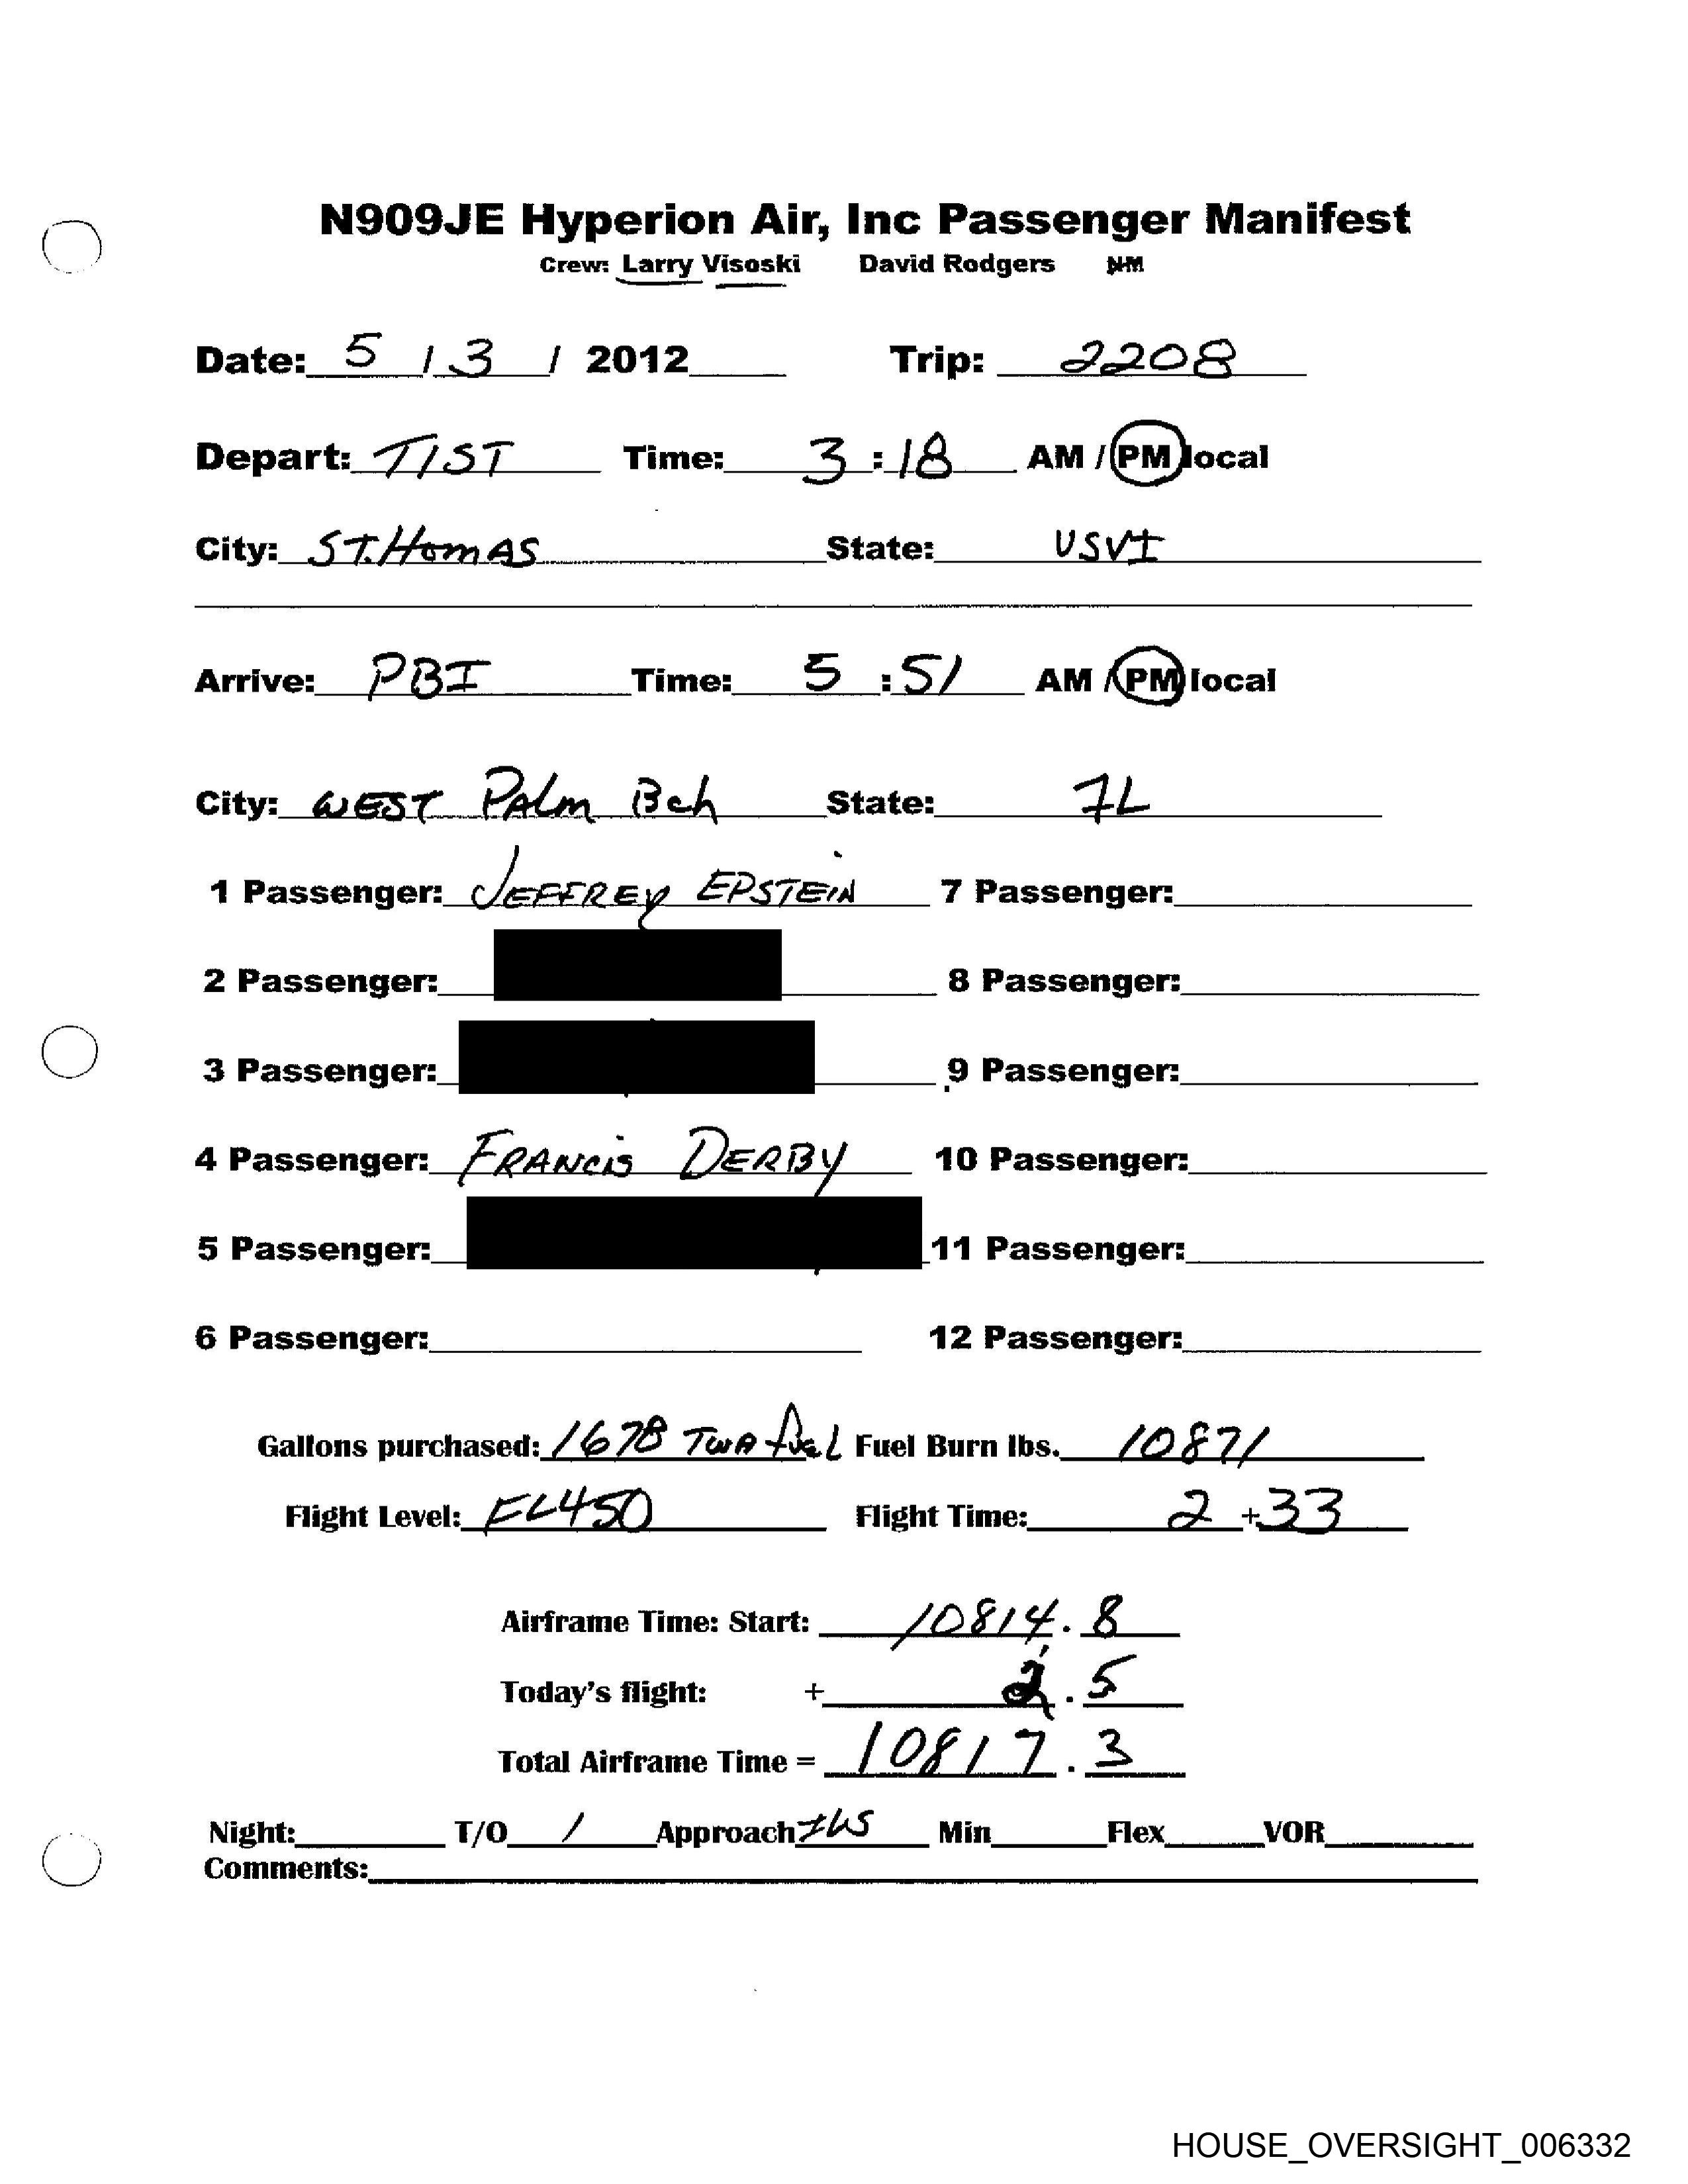 N909JE Hyperion Air, Inc Passenger Manifest
Crew: Larry Visoski David Rodgers NM
Date: 5 / 3 / 2012 Trip: 2208
Depart: TIST Time: 3 : 18 AM / PM local
City: ST. HomAS State: USVI
Arrive: PBI Time: 5 : 51 AM / PM local
City: WEST PALm Bch State: FL
1 Passenger: JEFFREY EPSTEIN 7 Passenger:
2 Passenger: 8 Passenger:
3 Passenger: 9 Passenger:
4 Passenger: FRANCIS DERBY 10 Passenger:
5 Passenger: 11 Passenger:
6 Passenger: 12 Passenger:
Gallons purchased: 1678 TWA fuel Fuel Burn lbs. 10871
Flight Level: FL450 Flight Time: 2 + 33
Airframe Time: Start: 10814 . 8
Today's flight: + 2 . 5
Total Airframe Time = 10817 . 3
Night: T/O 1 Approach ILS Min Flex VOR
Comments:
HOUSE_OVERSIGHT_006332